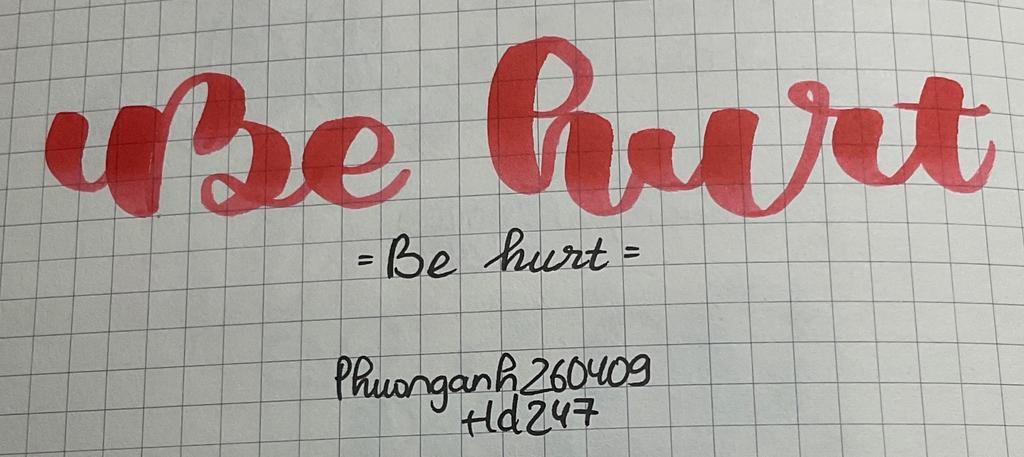 Be hurt
= Be hurt =
Phuonganh260409
Hd247